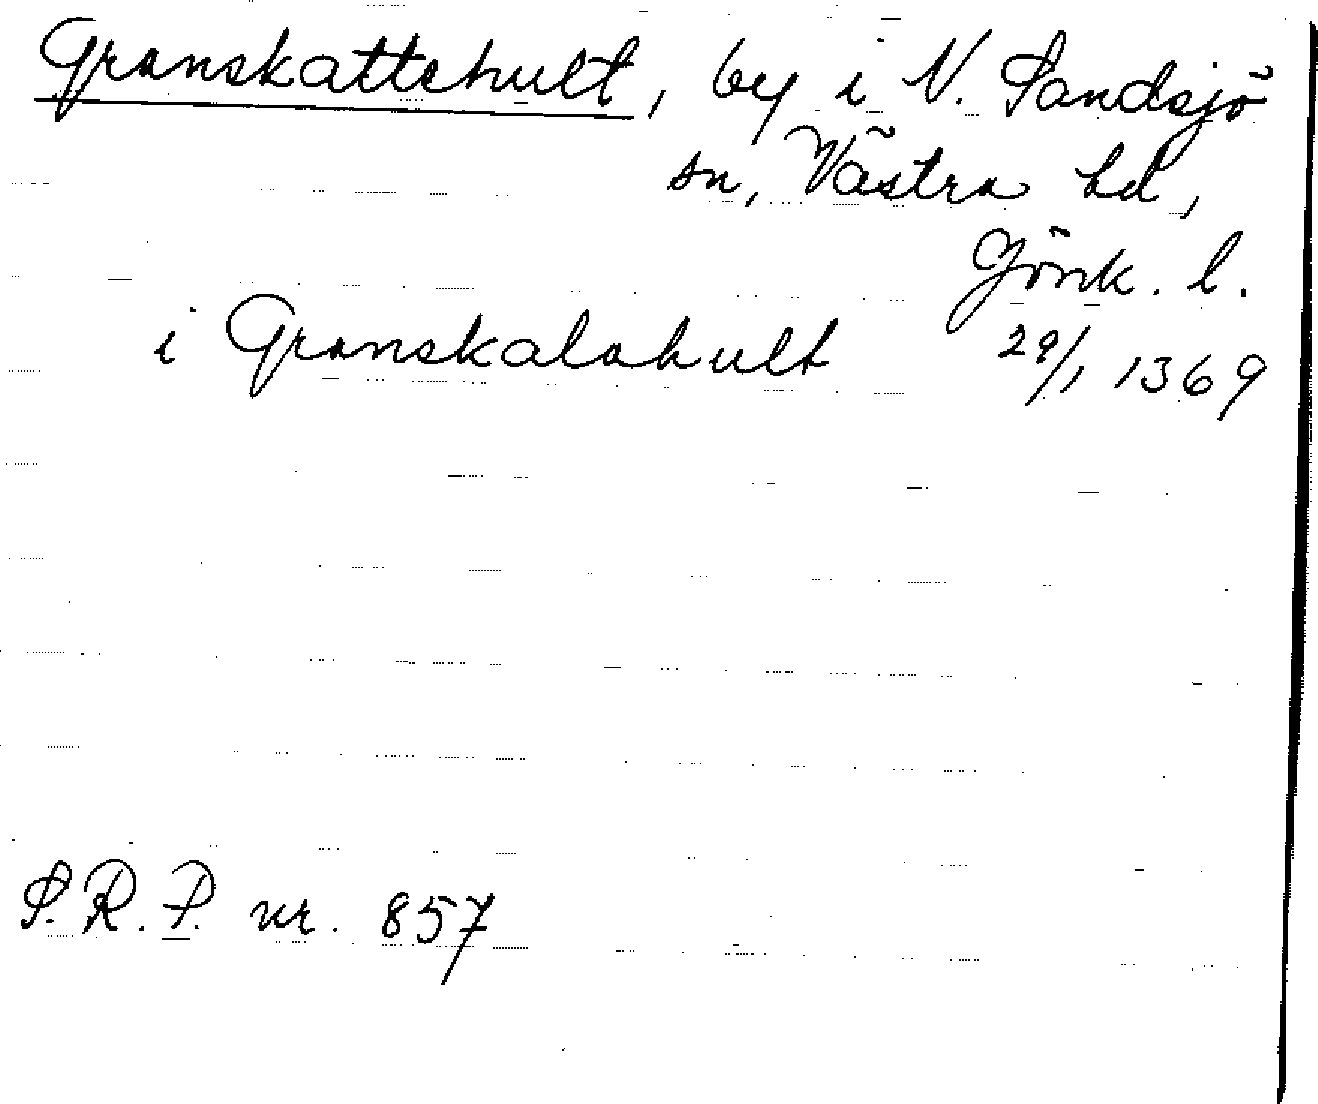 Granskattehult, by i N. Sandsjö
sn, Västra hd,
Jönk. l.
i Granskalahult 29/1 1369
S.R.P. nr. 857